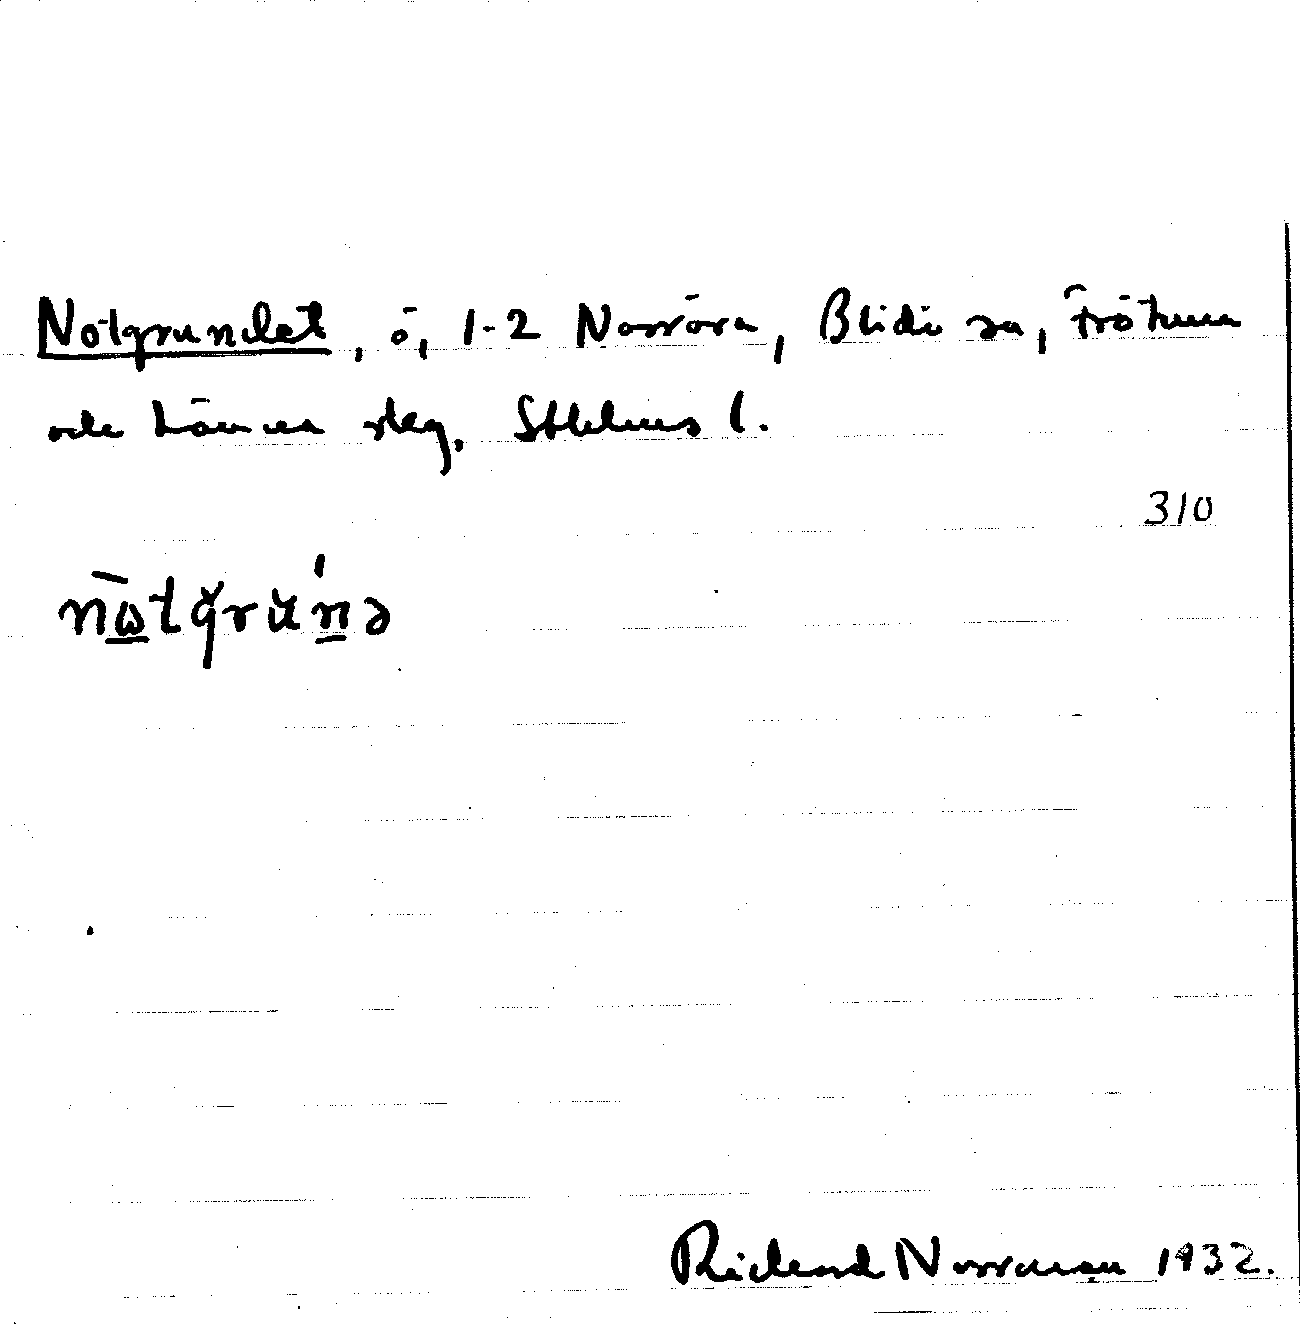 Notgrundet, ö, 1-2 Norröra, Blidö sn, Frötuna
och Länna skg, Sthlms l.
310
nωtgrunə
Rickard Norrman 1932.